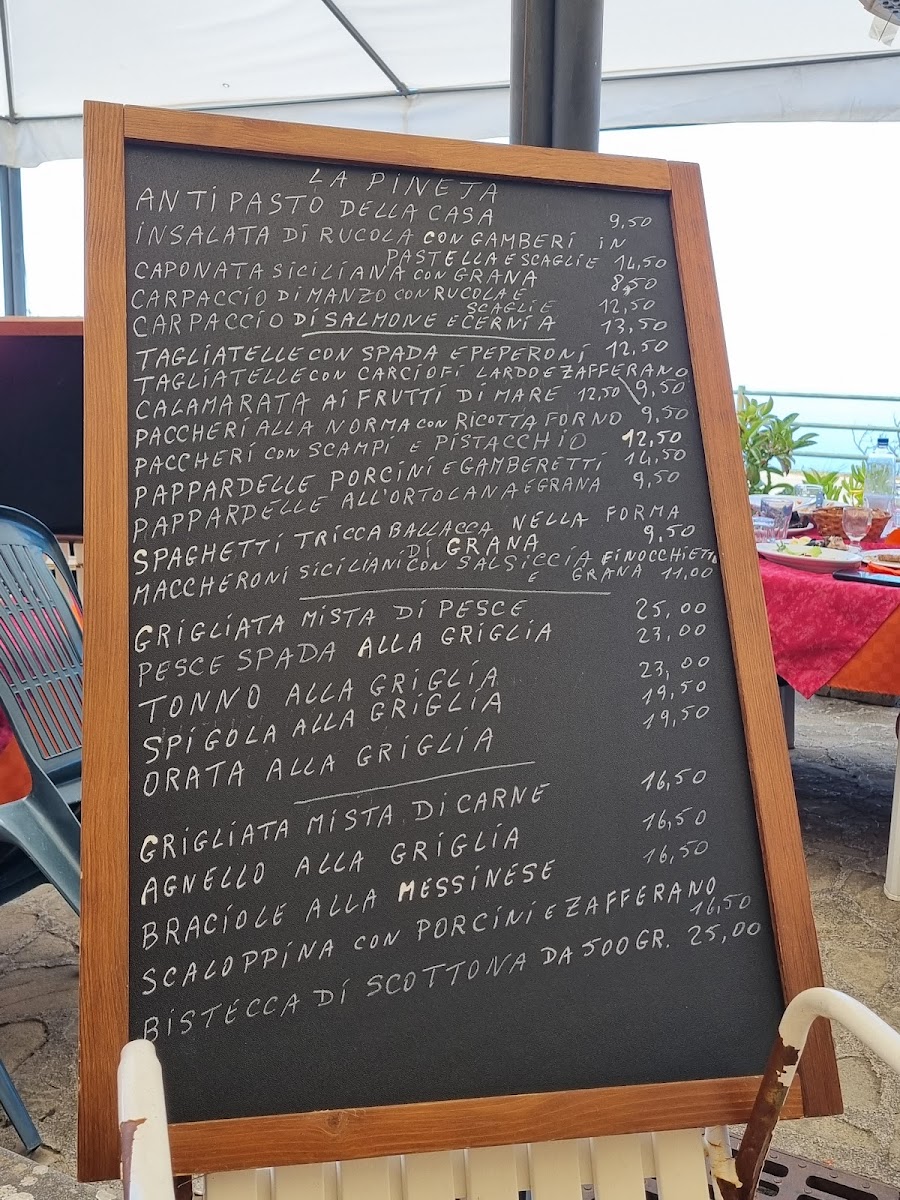 LA PINETA
ANTIPASTO DELLA CASA 9,50
INSALATA DI RUCOLA CON GAMBERI IN
PASTELLA E SCAGLIE 14,50
CAPONATA SICILIANA CON GRANA 8,50
CARPACCIO DI MANZO CON RUCOLA E
SCAGLIE 12,50
CARPACCIO DI SALMONE E CERNIA 13,50
TAGLIATELLE CON SPADA E PEPERONI 12,50
TAGLIATELLE CON CARCIOFI LARDO E ZAFFERANO
CALAMARATA AI FRUTTI DI MARE 12,50 \ 9,50
PACCHERI ALLA NORMA CON RICOTTA FORNO 9,50
PACCHERI CON SCAMPI E PISTACCHIO 12,50
PAPPARDELLE PORCINI E GAMBERETTI 14,50
PAPPARDELLE ALL'ORTOLANA E GRANA 9,50
SPAGHETTI TRICCABALLACCA NELLA FORMA
DI GRANA 9,50
MACCHERONI SICILIANI CON SALSICCIA FINOCCHIETTO
E GRANA 11,00
GRIGLIATA MISTA DI PESCE 25,00
PESCE SPADA ALLA GRIGLIA 23,00
TONNO ALLA GRIGLIA 23,00
SPIGOLA ALLA GRIGLIA 19,50
ORATA ALLA GRIGLIA 19,50
GRIGLIATA MISTA DI CARNE 16,50
AGNELLO ALLA GRIGLIA 16,50
BRACIOLE ALLA MESSINESE 16,50
SCALOPPINA CON PORCINI E ZAFFERANO
16,50
BISTECCA DI SCOTTONA DA 500 GR. 25,00